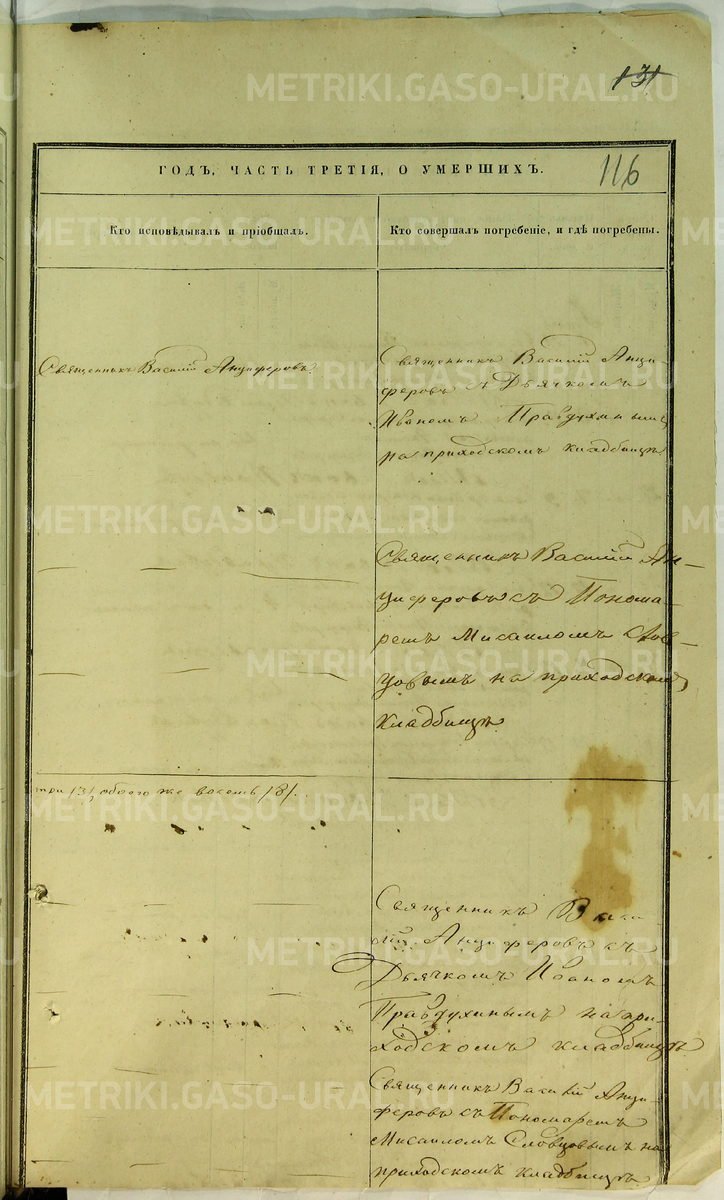 131
116
ГОДЪ, ЧАСТЬ ТРЕТІЯ, О УМЕРШИХЪ.
Кто исповѣдывалъ и пріобщалъ.
Кто совершалъ погребеніе, и гдѣ погребены.
Священникъ Василій Анциферовъ.
Священникъ Василій Анци-
феровъ съ Дьячкомъ
Иваномъ Правдухинымъ
на приходскомъ кладбищѣ
Священникъ Василій Ан-
циферовъ съ Понома-
ремъ Мисаиломъ Слов-
цовымъ на приходскомъ
кладбищѣ
три /3/, обоего же восемь /8/.
Священникъ Васи-
лій Анциферовъ съ
Дьячкомъ Иваномъ
Правдухинымъ на при-
ходскомъ кладбищѣ
Священникъ Василій Анци-
феровъ съ Пономаремъ
Мисаиломъ Словцовымъ на
приходскомъ кладбищѣ
METRIKI.GASO-URAL.RU